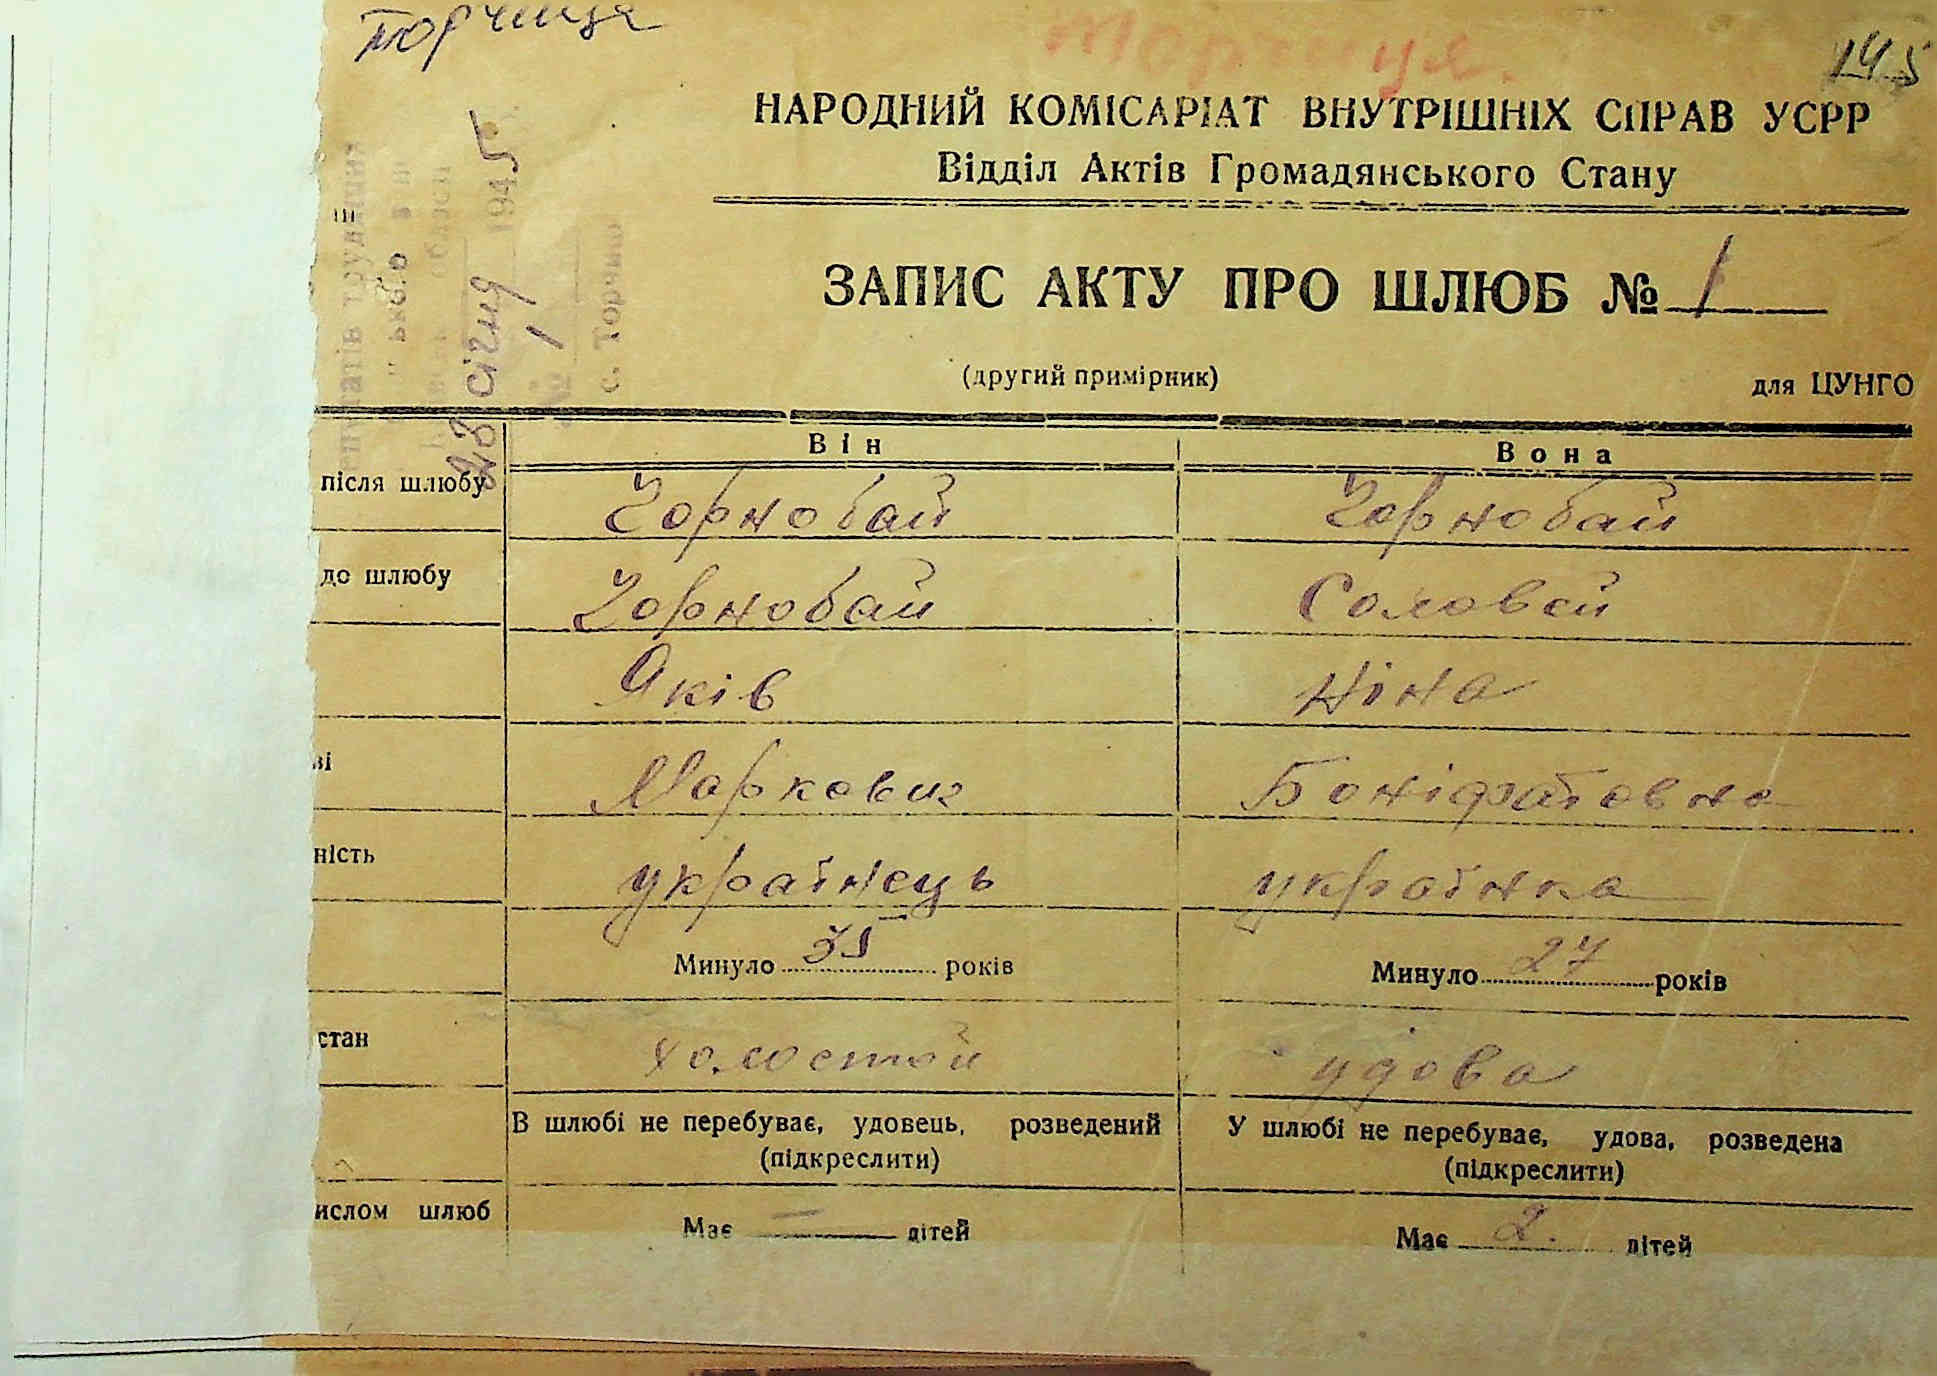 Торчиця
Торчиця.
145
НАРОДНИЙ КОМІСАРІАТ ВНУТРІШНІХ СПРАВ УСРР
Відділ Актів Громадянського Стану
ЗАПИС АКТУ ПРО ШЛЮБ № 1
(другий примірник)
для ЦУНГО
28 січня 1945
№ 1
Він Вона
після шлюбу Чорнобай Чорнобай
до шлюбу Чорнобай Соловей
Яків Ніна
ві Маркович Боніфатовна
ність українець українка
Минуло 35 років Минуло 27 років
стан холостой удова
В шлюбі не перебуває, удовець, розведений У шлюбі не перебуває, удова, розведена
(підкреслити) (підкреслити)
ислом шлюб Має — дітей Має 2. дітей